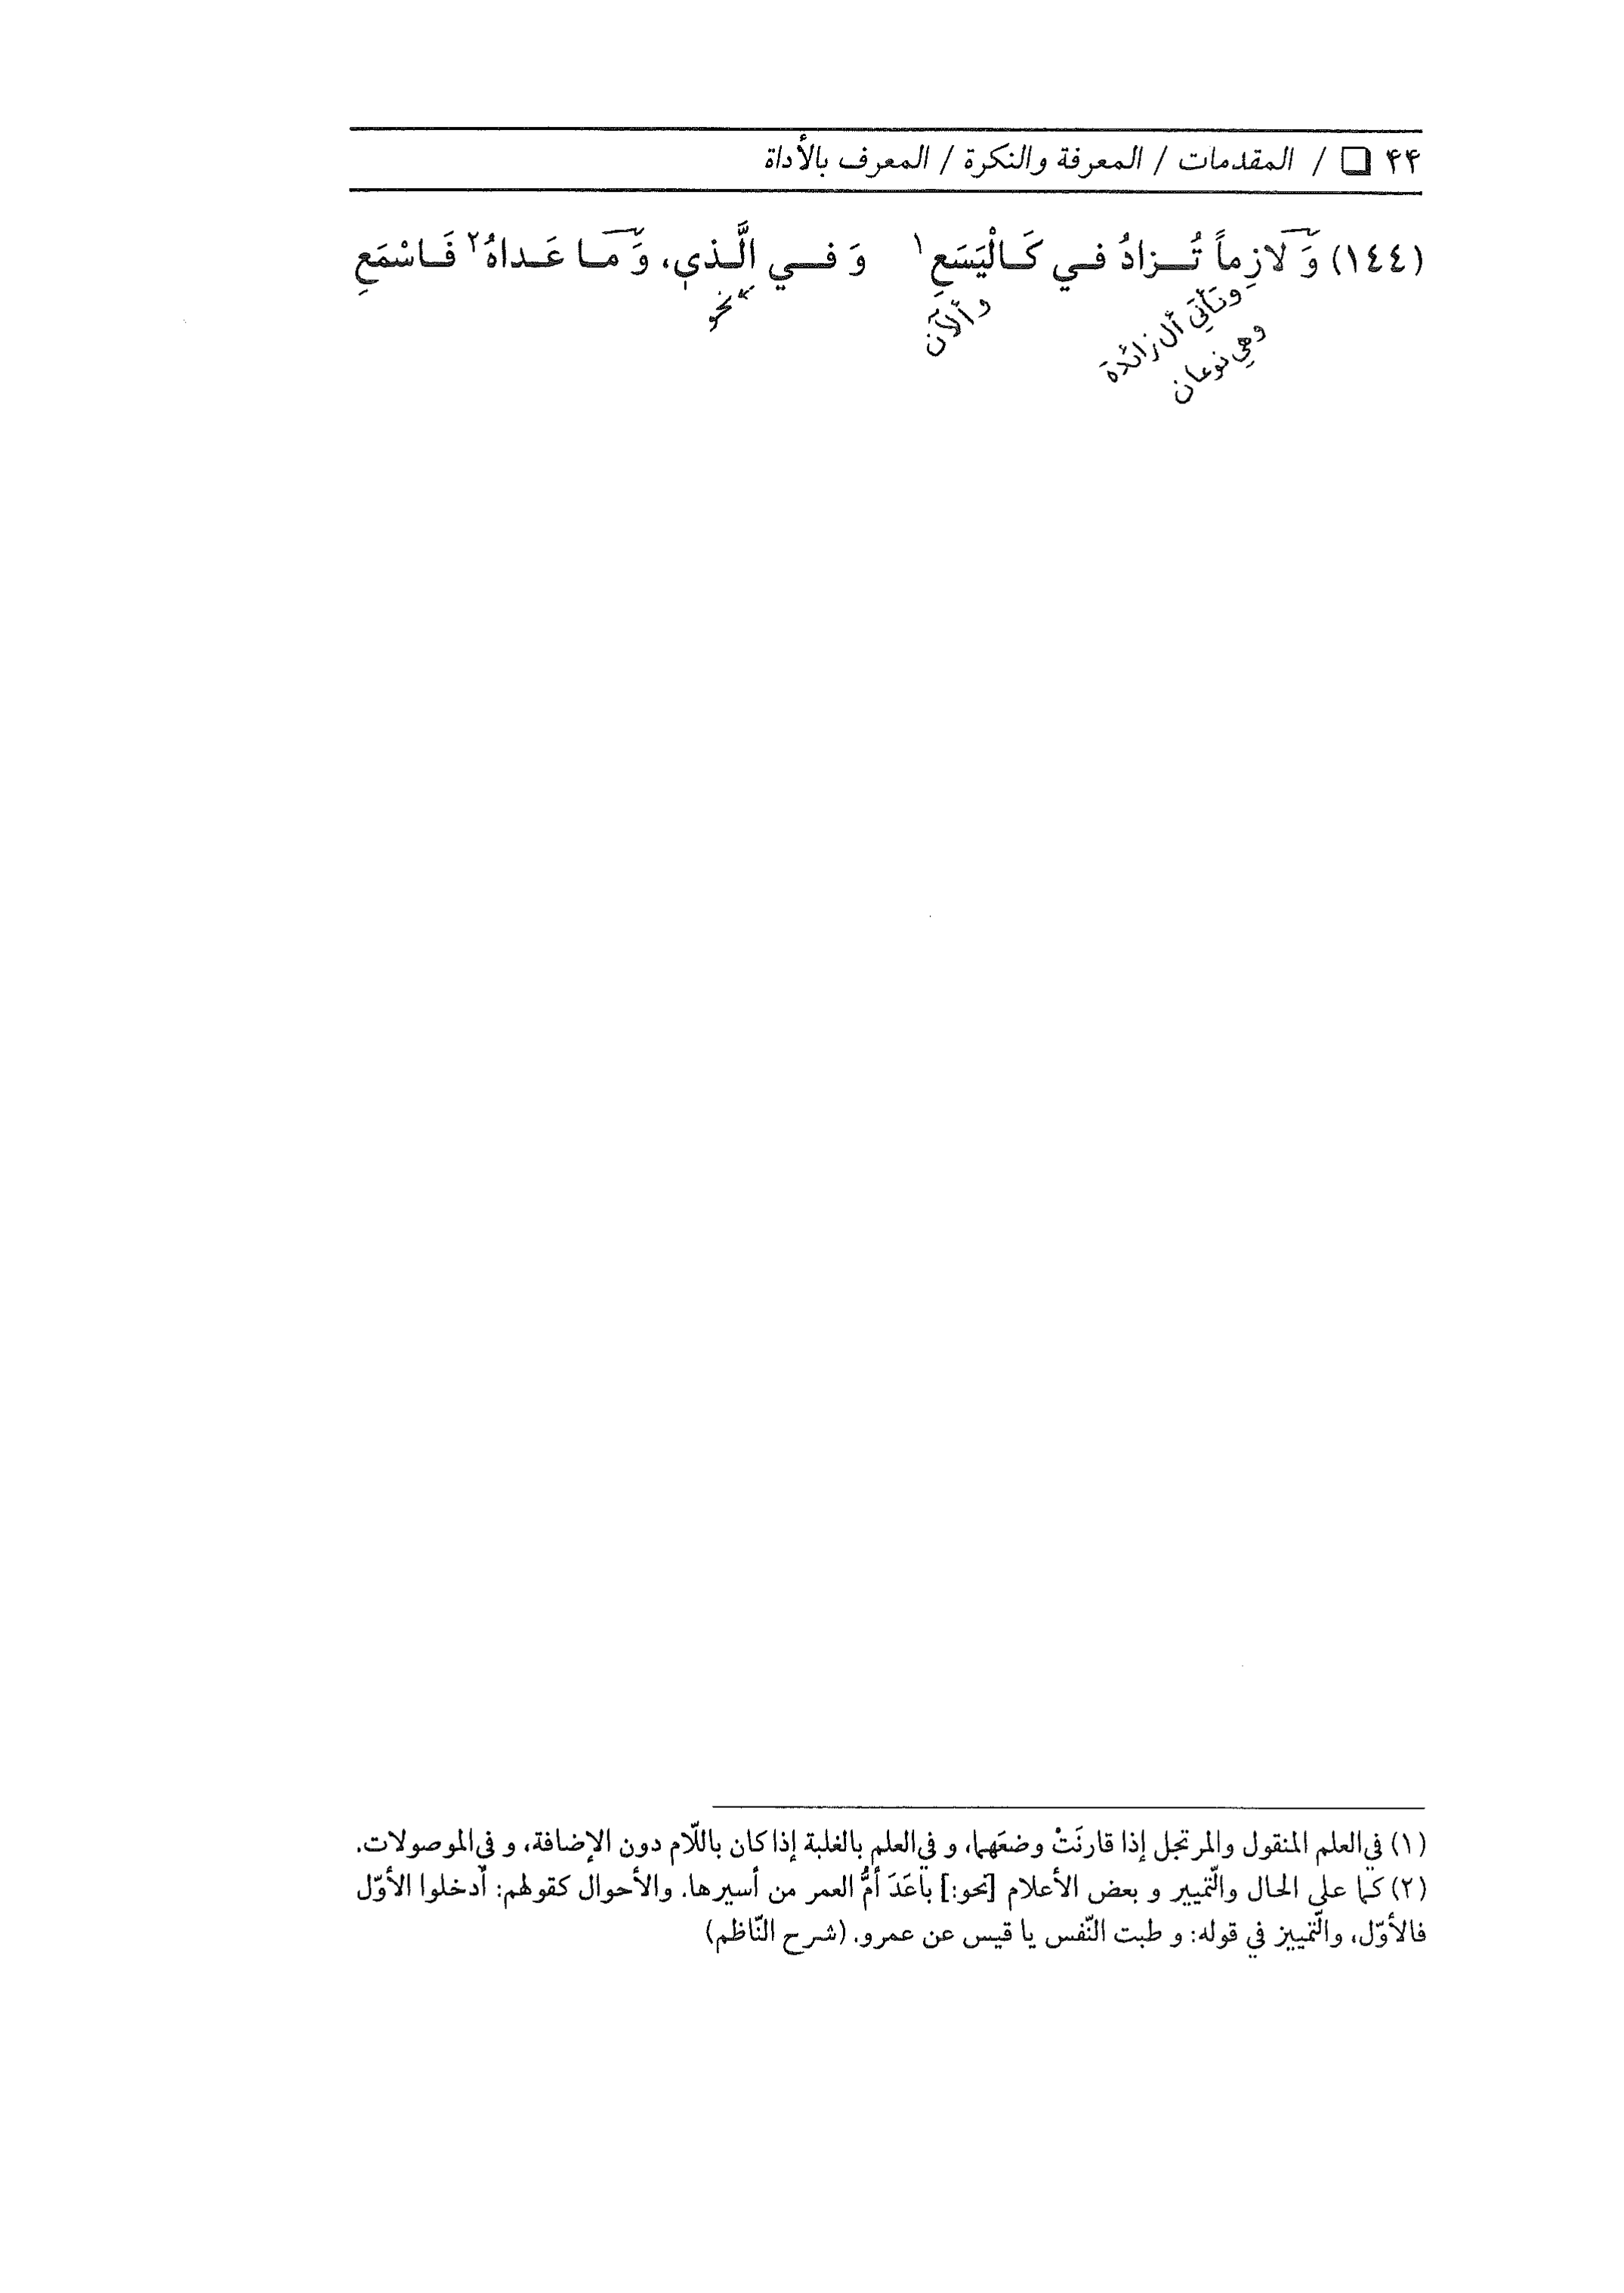 ۴۴ ❏ / المقدمات / المعرفة والنكرة / المعرف بالأداة
(١٤٤) وَ لازِماً تُـزادُ فـي كَـالْيَسَعِ١ وَ فـي الَّـذي، وَ مـا عَـداهُ٢ فَـاسْمَعِ
وتأتي أل زائدة
وهي نوعان
و ألآن
نحو
(١) في العلم المنقول والمرتجل إذا قارنَتْ وضعَهما، و في العلم بالغلبة إذا كان باللّام دون الإضافة، و في الموصولات.
(٢) كما على الحال والتّمييز و بعض الأعلام [نحو:] باعَدَ أمُّ العمر من أسيرها. والأحوال كقولهم: اُدخلوا الأوّل
فالأوّل، والتّمييز في قوله: و طبت النّفس يا قيس عن عمرو. (شرح النّاظم)